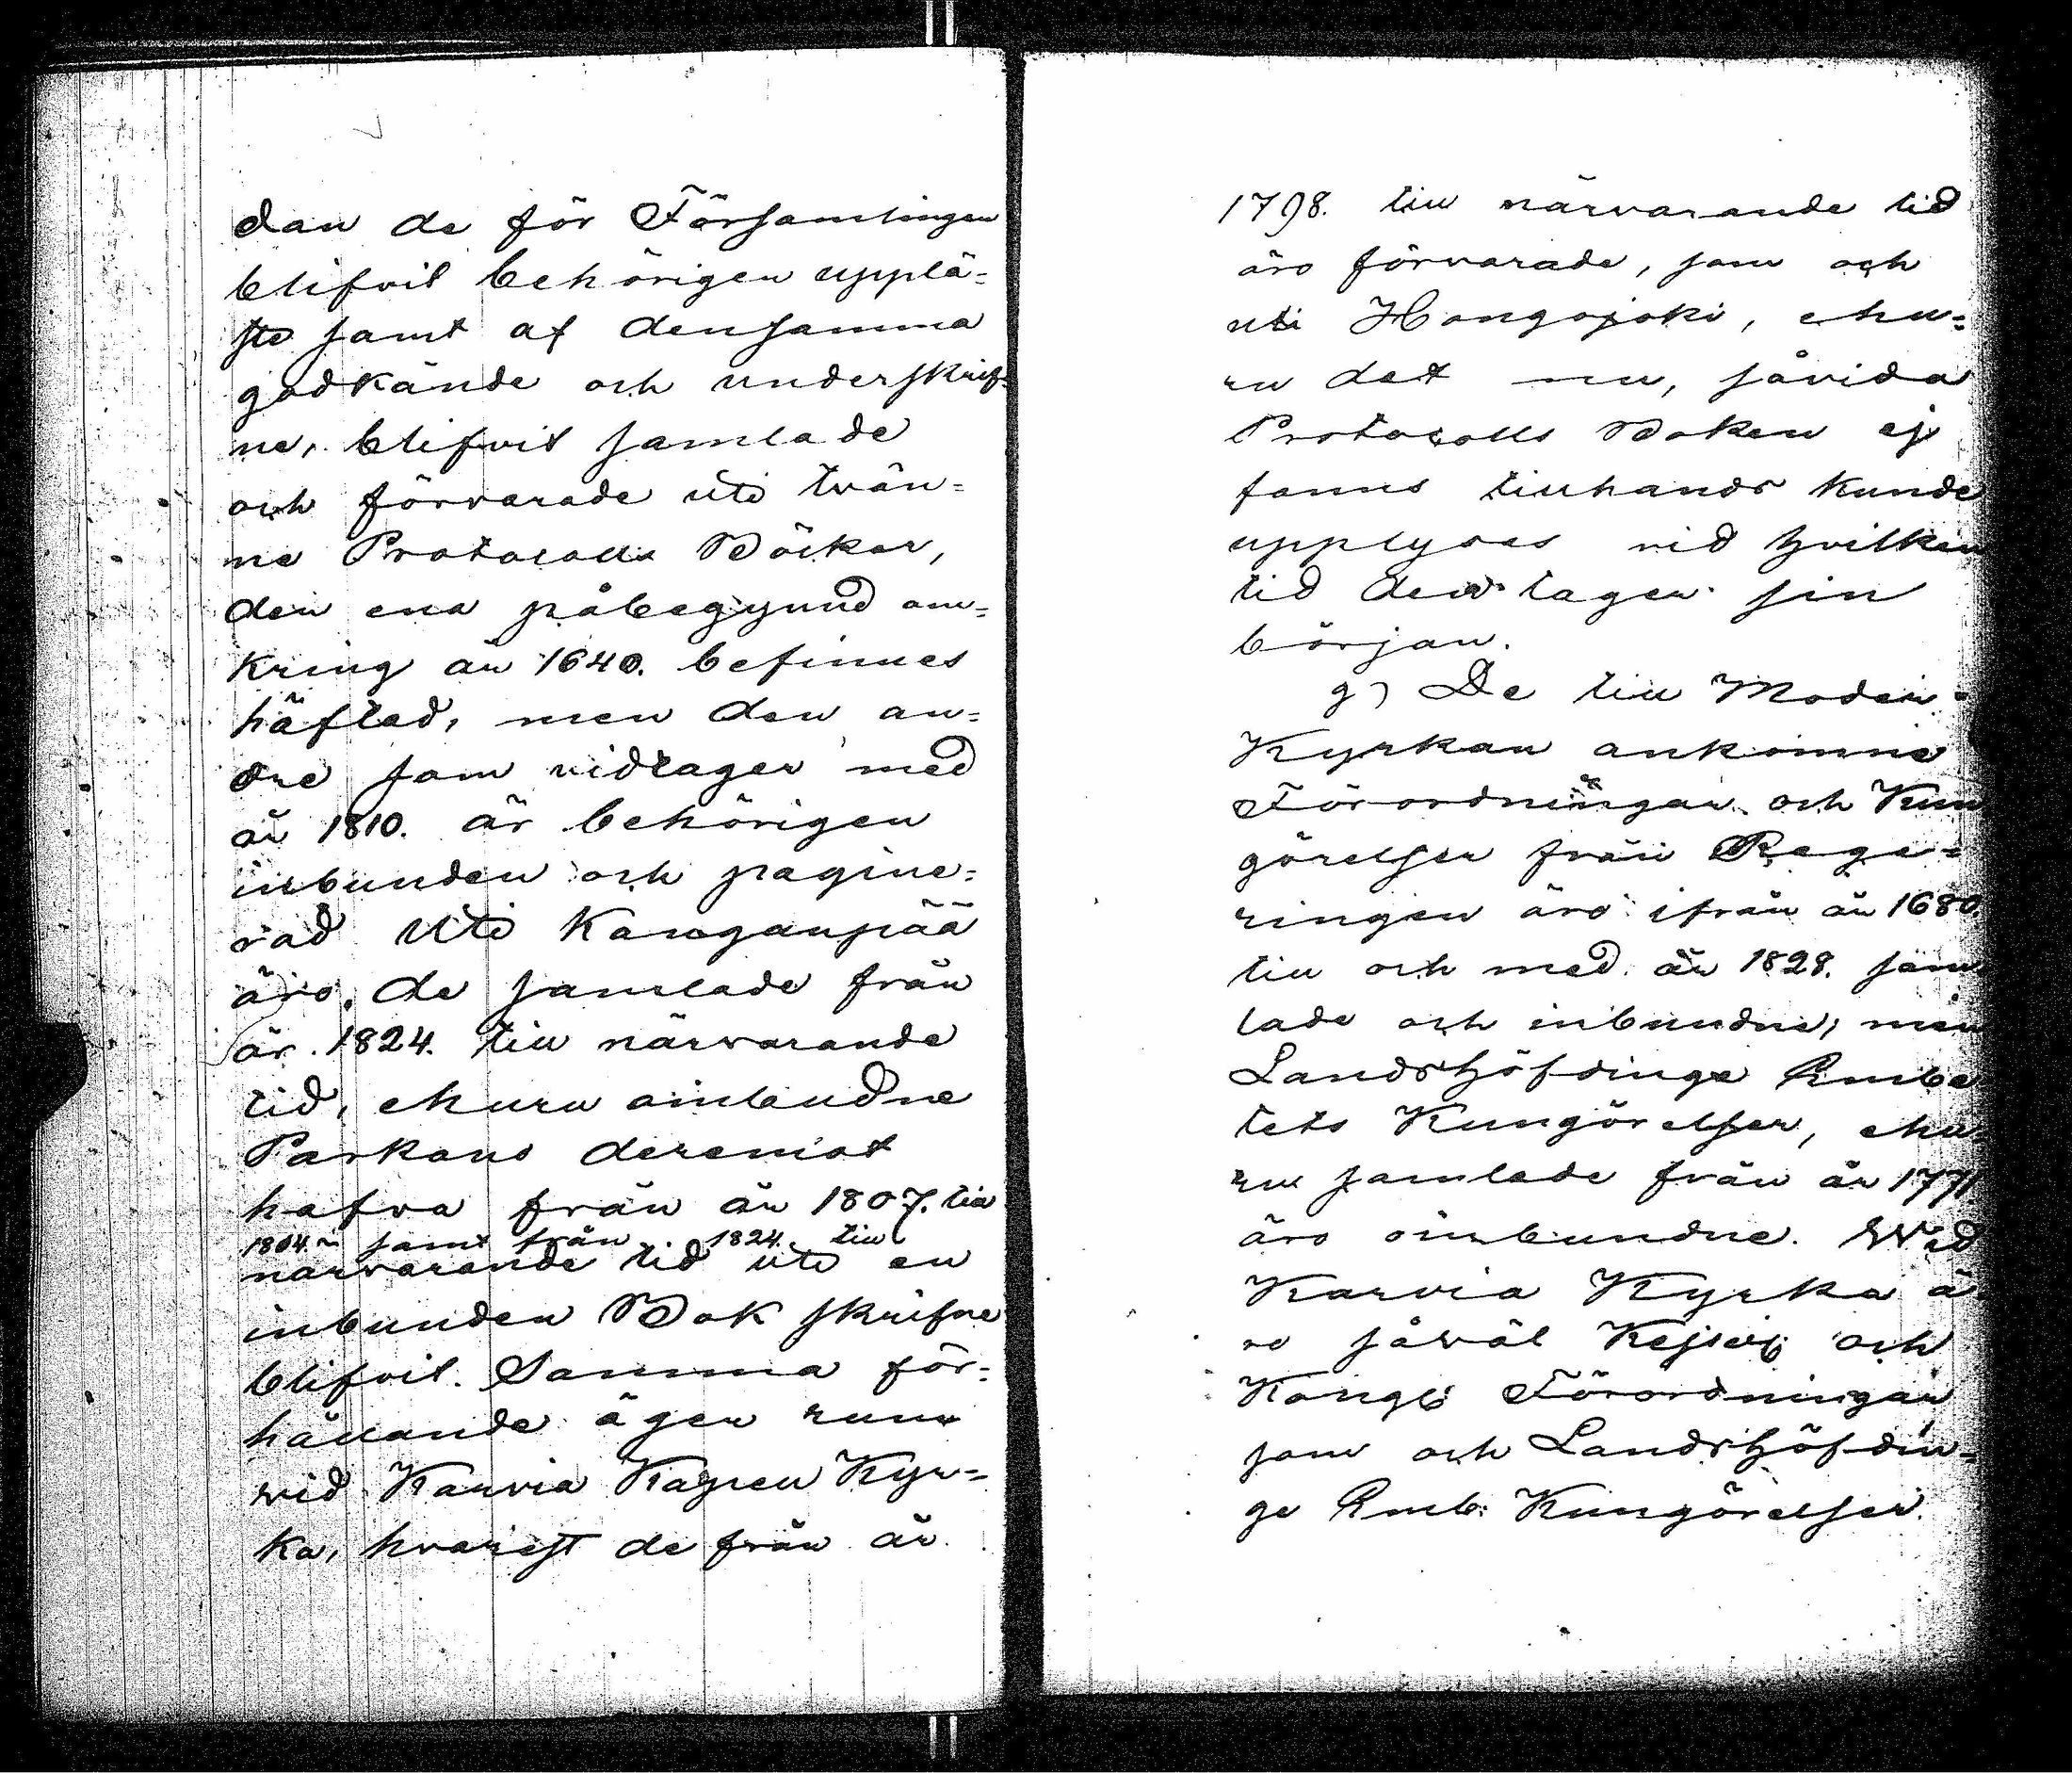 dan de för Församlingen
blifvit behörigen upplä=
ste samt af densamma
godkände och underskrif=
ne, blifvit samlade
och förvarade uti tvän=
ne Protocolls Böcker,
den ena påbegynnd om=
kring år 1640. befinnes
häftad, men den an=
dre som vidtager med
år 1810. är behörigen
inbunden och pagine=
rad Uti Kangaupää
äro de samlade från
år 1824. till närvarande
tid, ehuru oinbundne
Parkano deremot
hafva från år 1807. till
1814. samt från 1824. till
närvarande tid uti en
inbunden Bok skrifne
blifvit. Samma för=
hållande äger rum
vid Karvia Kapell Kyr=
ka, hvarest de från år
1798. till närvarande tid
äro förvarade, som och
uti Hongojoki, ehu=
ru det nu, såvida
Protocolls Boken ej
fanns tillhands kunde
upplysas vid hvilken
tid den tager sin
början.
g) De till Moder=
Kyrkan ankomne
Förordningar och Kun
görelser från Rege=
ringen äro ifrån år 1680.
till och med år 1828. sam
lade och inbundne, men
Landshöfdinge Embe
tets Kungörelser, ehu=
ru samlade från år 1771
äro oinbundne. Wid
Karvia Kyrka ä
ro såväl Kejserl: och
Kongl: Förordningar
som och Landshöfdin=
ge Emb: Kungörelser